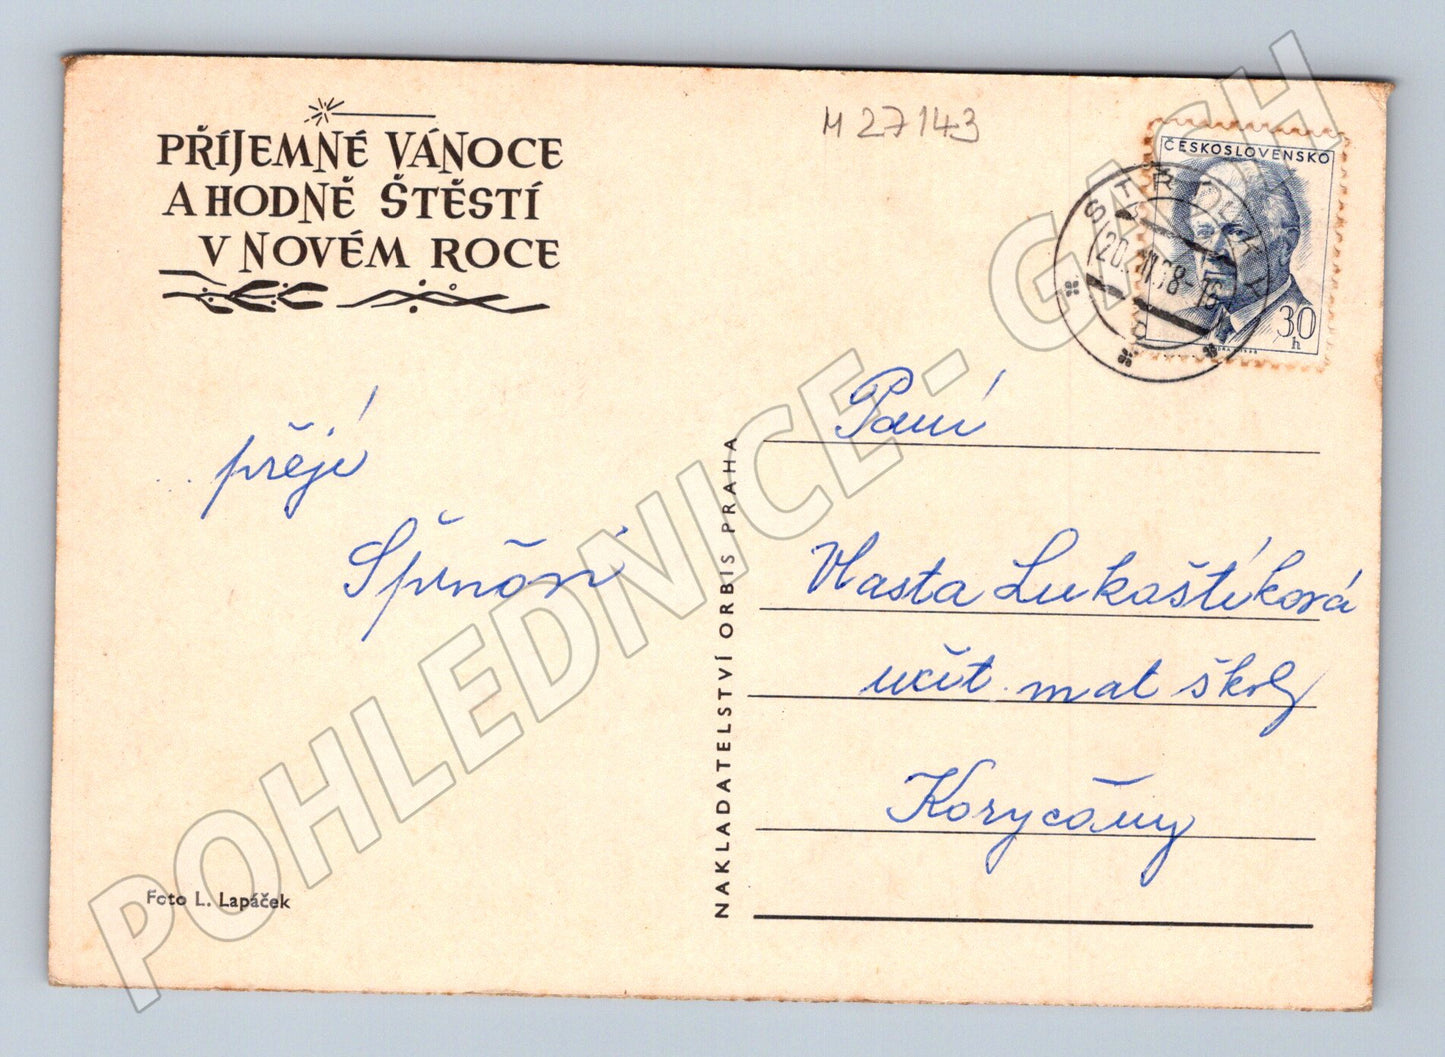 PŘÍJEMNÉ VÁNOCE
A HODNĚ ŠTĚSTÍ
V NOVÉM ROCE
M 27143
ČESKOSLOVENSKO
30
h
přejí
Foto L. Lapáček
NAKLADATELSTVÍ ORBIS PRAHA
Paní
Vlasta Lukaštíková
učit. mat školy
Koryčany
POHLEDNICE - GASH